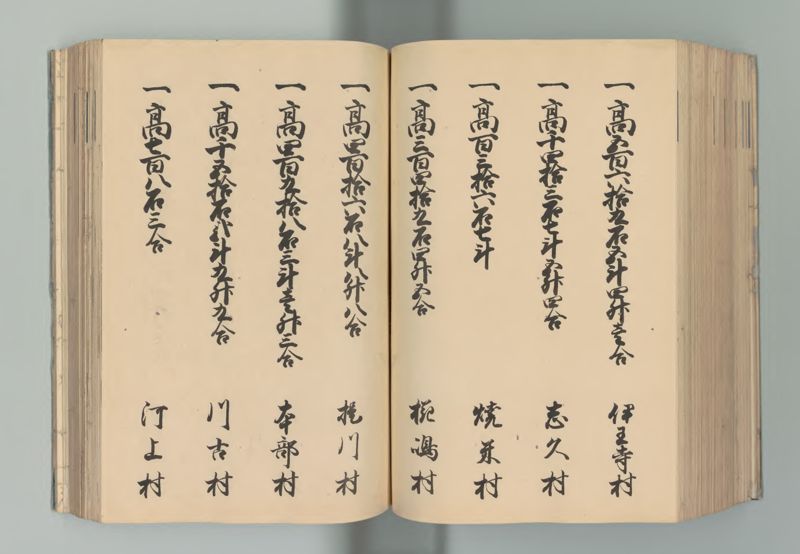 一高五百六拾五石五斗四升壱合 伊王寺村
一高千四拾三石七斗五升四合 志久村
一高百三拾六石七斗 焼米村
一高三百四拾九石四升五合 椛嶋村
一高四百拾六石八斗八升八合 川村
一高四百九拾八石三斗壱升三合 本部村
一高千五拾石弐斗九升九合 川古村
一高七百八石三合 河上村